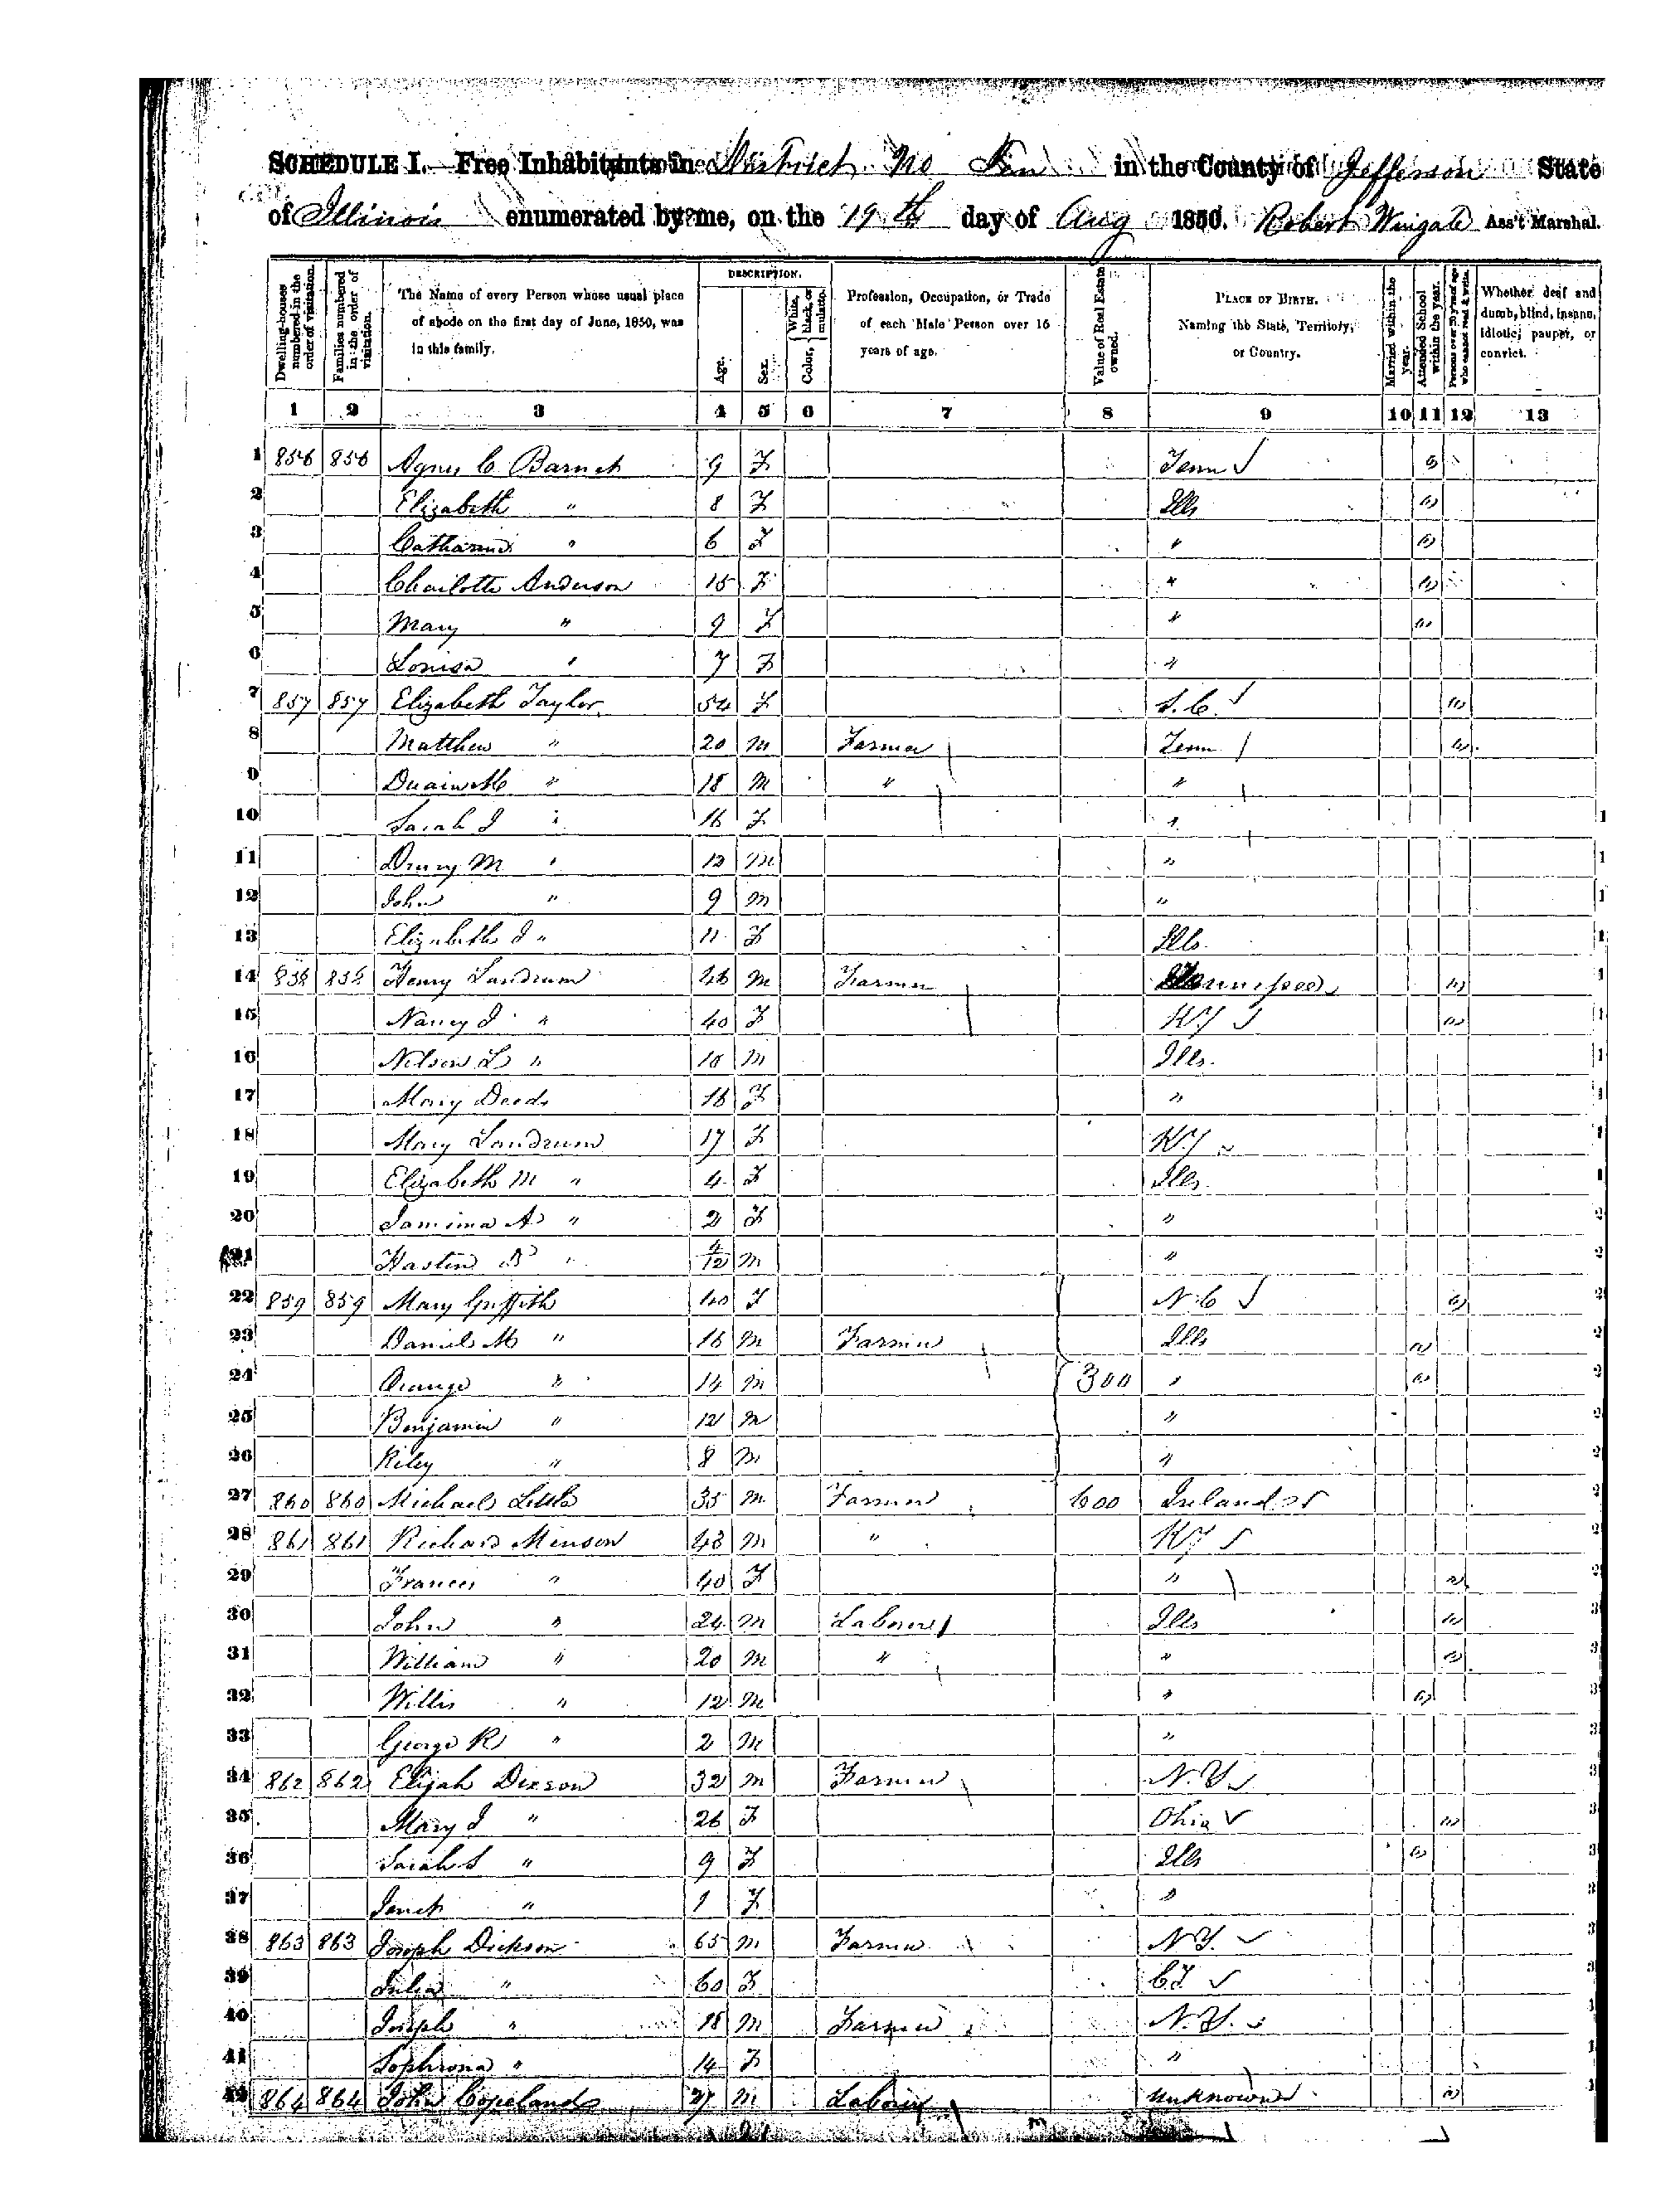 SCHEDULE I.—Free Inhabitants in District No Ten in the County of Jefferson State
of Illinois enumerated by me, on the 19th day of Aug 1850. Robert Wingate Ass't Marshal.
Dwelling-houses numbered in the order of visitation.
Families numbered in the order of visitation.
The Name of every Person whose usual place of abode on the first day of June, 1850, was in this family.
DESCRIPTION.
Age.
Sex.
Color, White, black, or mulatto.
Profession, Occupation, or Trade of each Male Person over 15 years of age.
Value of Real Estate owned.
PLACE OF BIRTH. Naming the State, Territory, or Country.
Married within the year.
Attended School within the year.
Persons over 20 y'rs of age who cannot read & write.
Whether deaf and dumb, blind, insane, idiotic, pauper, or convict.
1 2 3 4 5 6 7 8 9 10 11 12 13
1 856 856 Agnes C. Barnet 9 F Tenn
2 Elizabeth " 8 F Ills
3 Catharine " 6 F "
4 Charlotte Anderson 15 F "
5 Mary " 9 F "
6 Louisa " 7 F "
7 857 857 Elizabeth Taylor 54 F S.C.
8 Matthew " 20 M Farmer Tenn
9 " 18 M " "
10 Sarah J " 16 F "
11 Drury M " 12 M "
12 John " 9 M "
13 Elizabeth J " 11 F Ills.
14 858 858 Henry Landrum 46 M Farmer Tennessee
15 Nancy J " 40 F KY
16 Nelson L " 10 M Ills.
17 Mary Deeds 16 F "
18 Mary Landrum 17 F KY
19 Elizabeth M " 4 F Ills.
20 Jamima A " 2 F "
21 Hastin B " 4/12 M "
22 859 859 Mary Griffith 40 F N.C
23 Daniel M " 16 M Farmer Ills
24 Orange " 14 M 300 "
25 Benjamin " 12 M "
26 Riley " 8 M "
27 860 860 Michael Little 35 M Farmer 600 Ireland
28 861 861 Richard Minson 43 M " KY
29 Frances " 40 F "
30 John " 24 M Laborer Ills
31 William " 20 M " "
32 Willis " 12 M "
33 George R " 2 M "
34 862 862 Elijah Dixson 32 M Farmer N.Y
35 Mary J " 26 F Ohio
36 Sarah S " 9 F Ills
37 Janet " 1 F "
38 863 863 Joseph Dickson 65 M Farmer N.Y.
39 Julia " 60 F C.T
40 Joseph " 18 M Farmer N.Y.
41 Sophrona " 14 F "
42 864 864 John Copeland 27 M Laborer Unknown